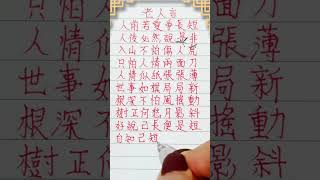 老人言
人前若愛爭長短
人後必然說是非
入山不怕傷人虎
只怕人情兩面刀
人情似紙張張薄
世事如棋局局新
根深不怕風搖動
樹正何愁月影斜
好說己長便是短
自知己短